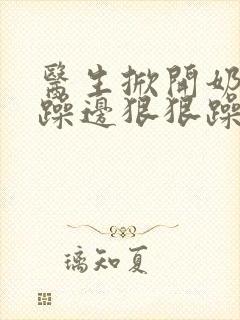 醫生掀開奶
躁邊狠狠躁
璃知夏